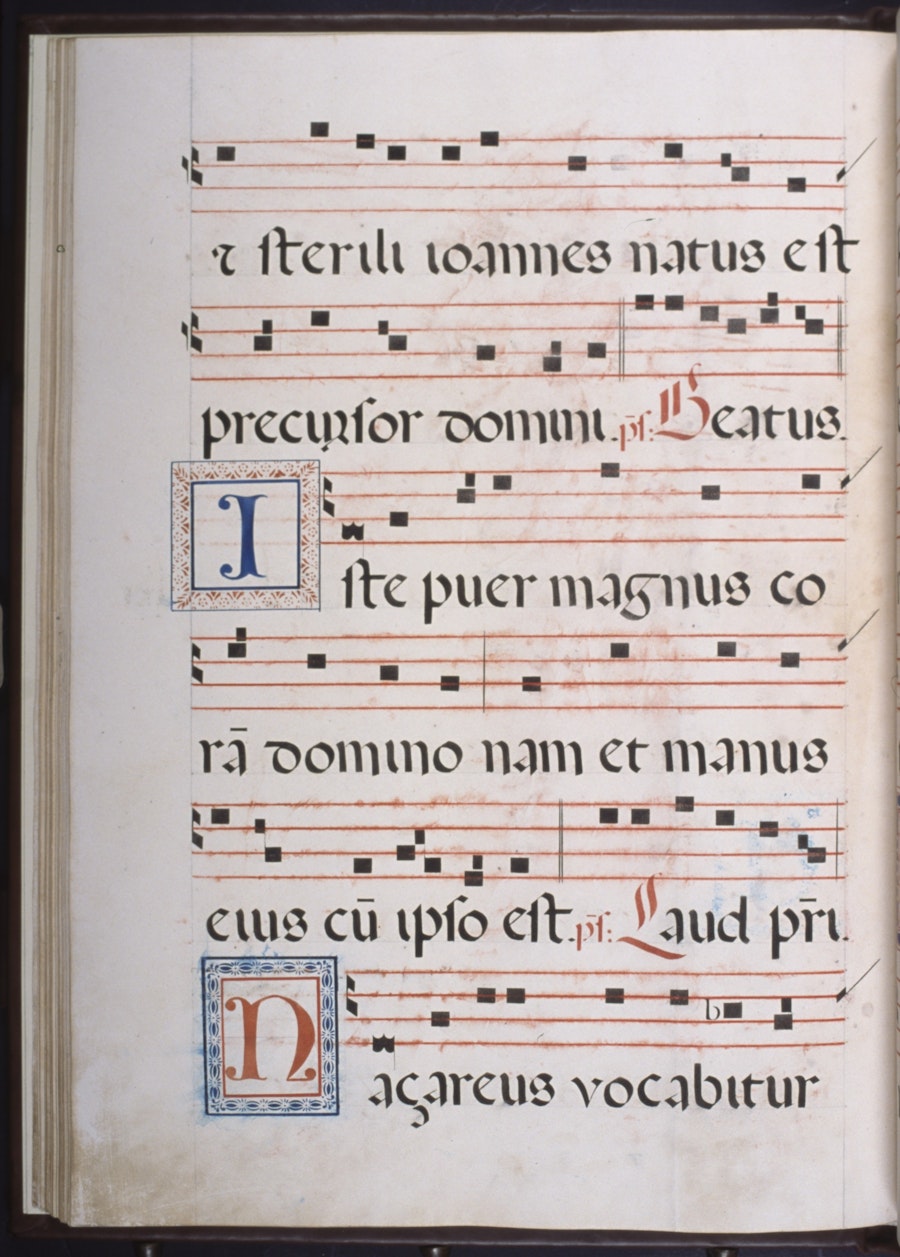 ⁊ sterili ioannes natus est
precursor domini. ps̄: Beatus.
Iste puer magnus co
rā domino nam et manus
eius cū ipso est. ps̄: Laud pr̄i.
Naçareus vocabitur